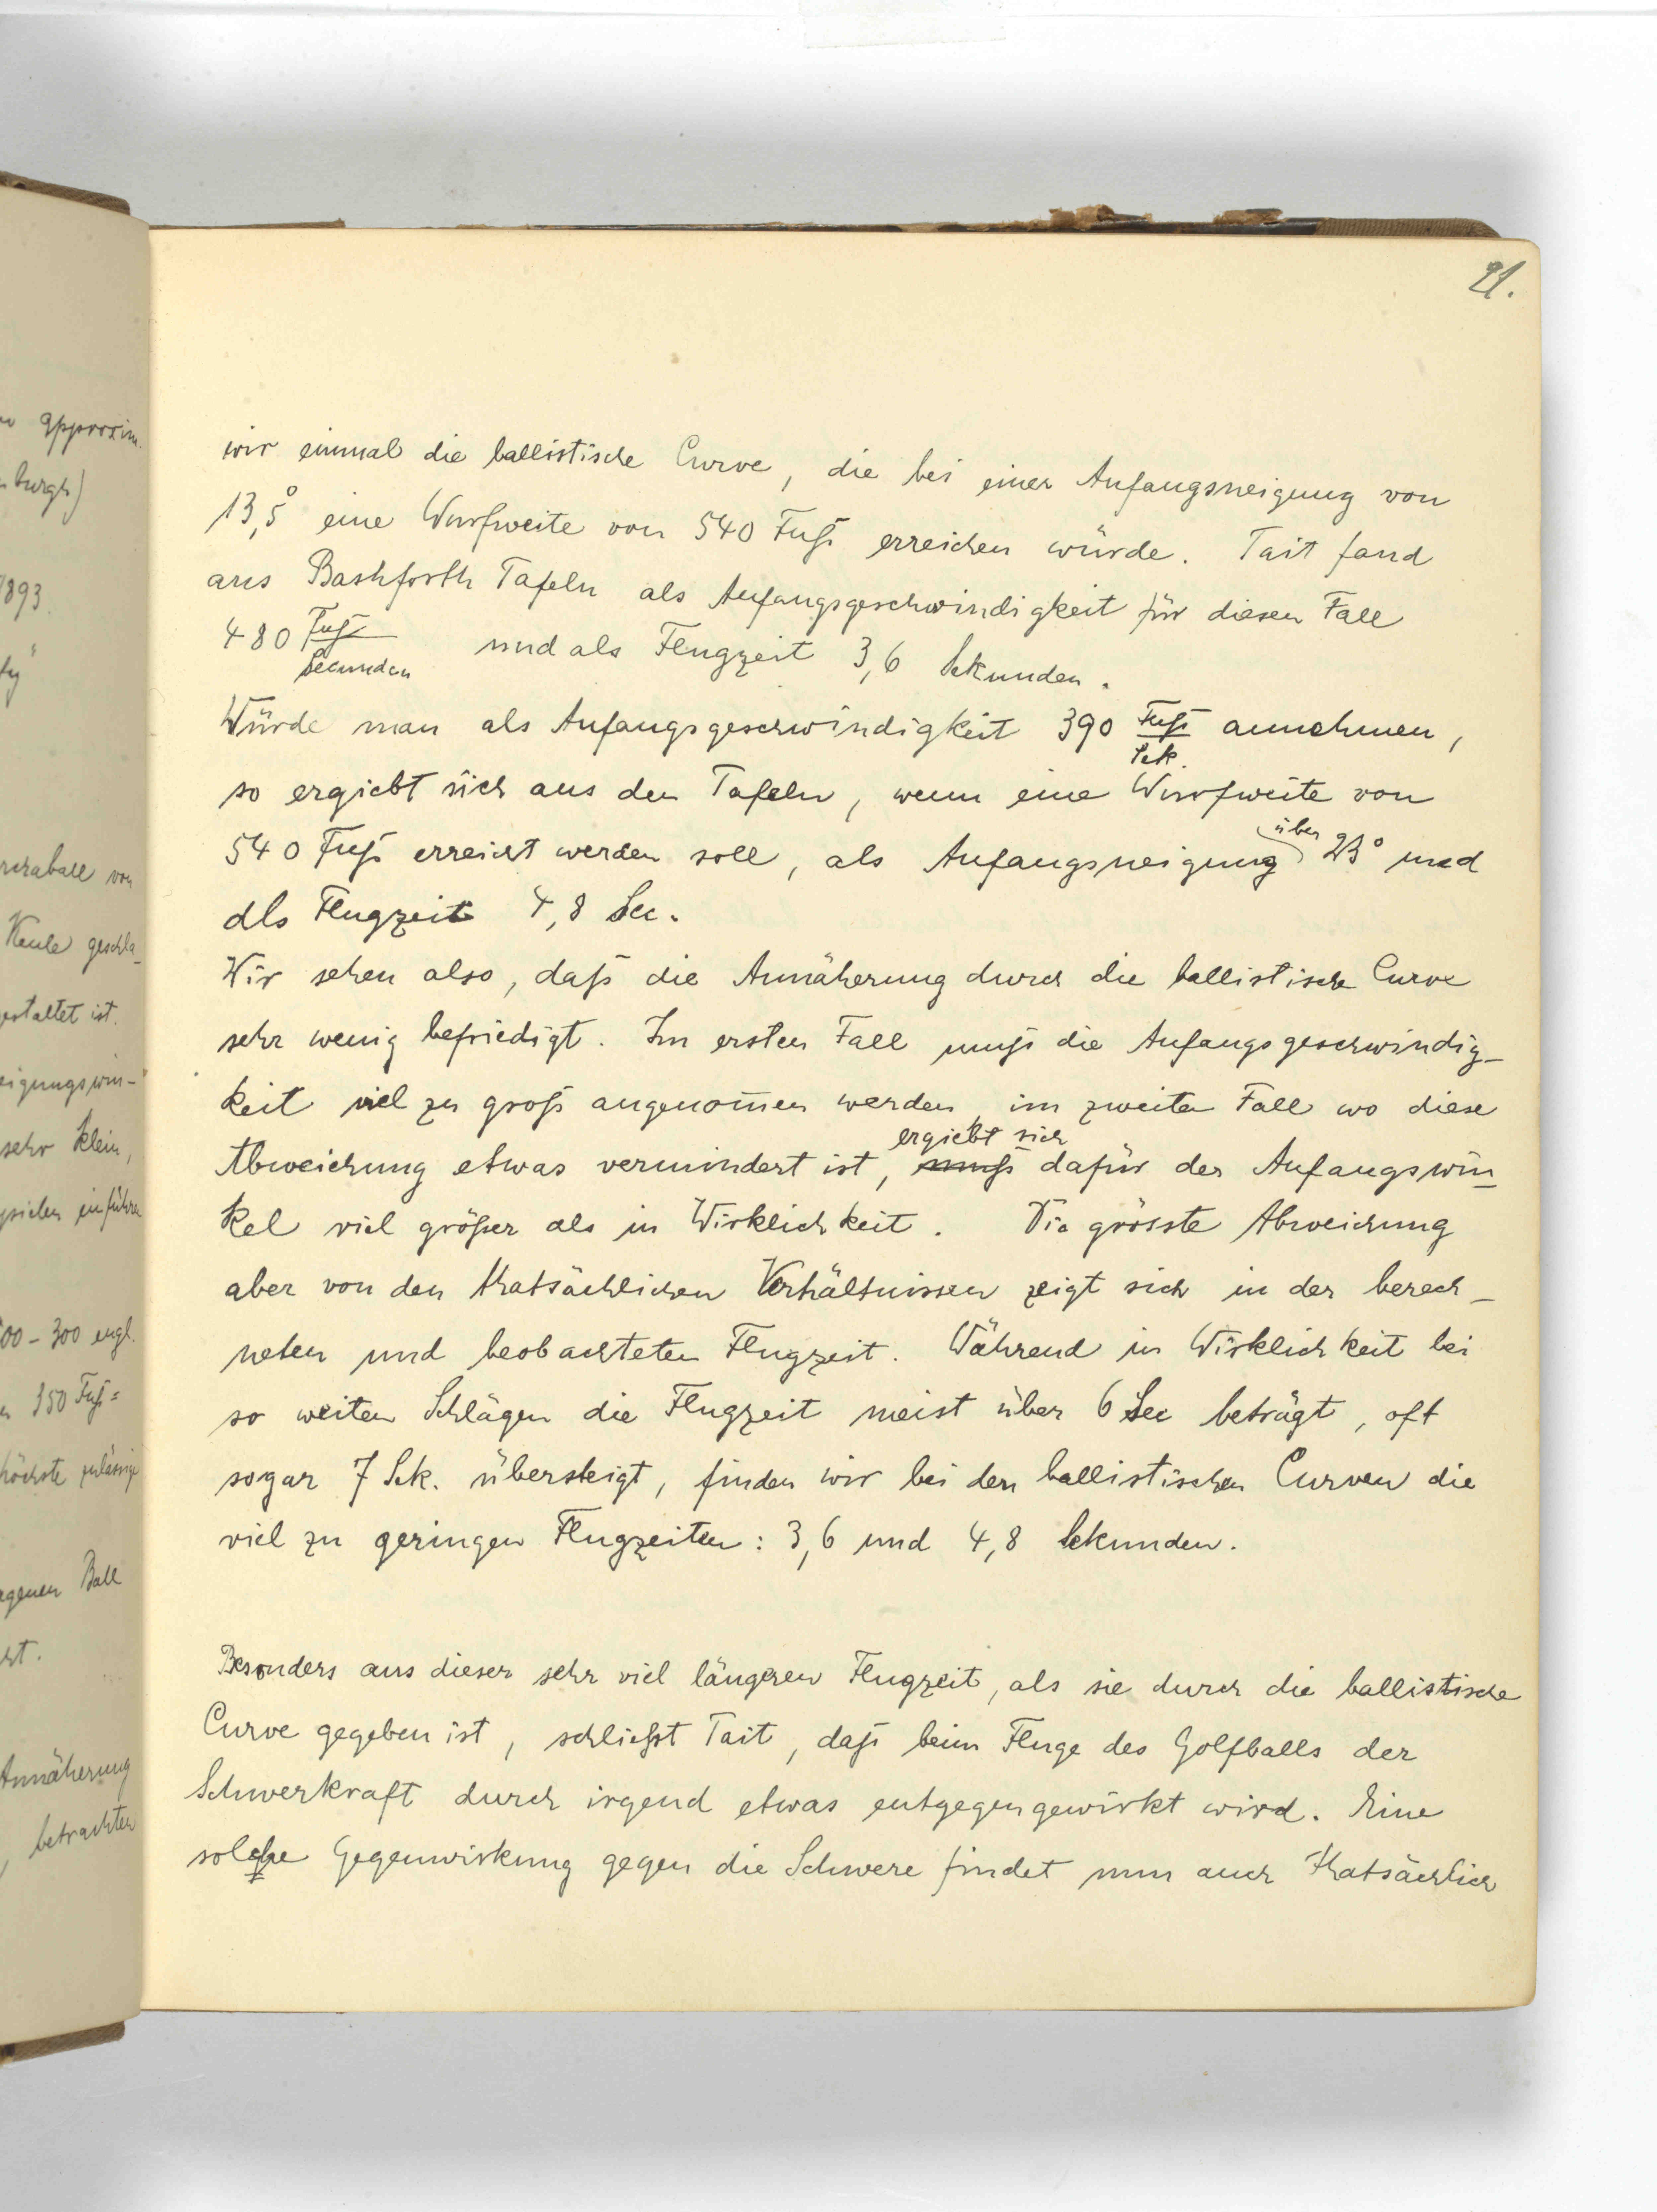 21.
wir einmal die ballistische Curve, die bei einer Anfangsneigung von
13,5° eine Wurfweite von 540 Fuß erreichen würde. Tait fand
aus Bashforth Tafeln als Anfangsgeschwindigkeit für diesen Fall
480 Fuß/Secunden und als Flugzeit 3,6 Sekunden.
Würde man als Anfangsgeschwindigkeit 390 Fuß/Sek. annehmen,
so ergiebt sich aus den Tafeln, wenn eine Wurfweite von
540 Fuß erreicht werden soll, als Anfangsneigung über 23° und
als Flugzeit 4,8 Sec.
Wir sehen also, daß die Annäherung durch die ballistische Curve
sehr wenig befriedigt. Im ersten Fall muß die Anfangsgeschwindig-
keit viel zu groß angenom̅en werden, im zweiten Fall wo diese
Abweichung etwas vermindert ist, muß ergiebt sich dafür der Anfangswin-
kel viel größer als in Wirklichkeit. Die grösste Abweichung
aber von den thatsächlichen Verhältnissen zeigt sich in der berech-
neten und beobachteten Flugzeit. Während in Wirklichkeit bei
so weiten Schlägen die Flugzeit meist über 6 Sec beträgt, oft
sogar 7 Sek. übersteigt, finden wir bei den ballistischen Curven die
viel zu geringen Flugzeiten: 3,6 und 4,8 Sekunden.
Besonders aus dieser sehr viel längeren Flugzeit, als sie durch die ballistische
Curve gegeben ist, schließt Tait, daß beim Fluge des Golfballs der
Schwerkraft durch irgend etwas entgegengewirkt wird. Eine
solche Gegenwirkung gegen die Schwere findet nun auch thatsächlich
approxim.
burgh)
1893.
von
Keule geschla-
gestaltet ist.
eigungswin-
sehr klein,
einführen
00-300 engl.
350 Fuß=
höchste zulässige
Ball
Annäherung
, betrachten